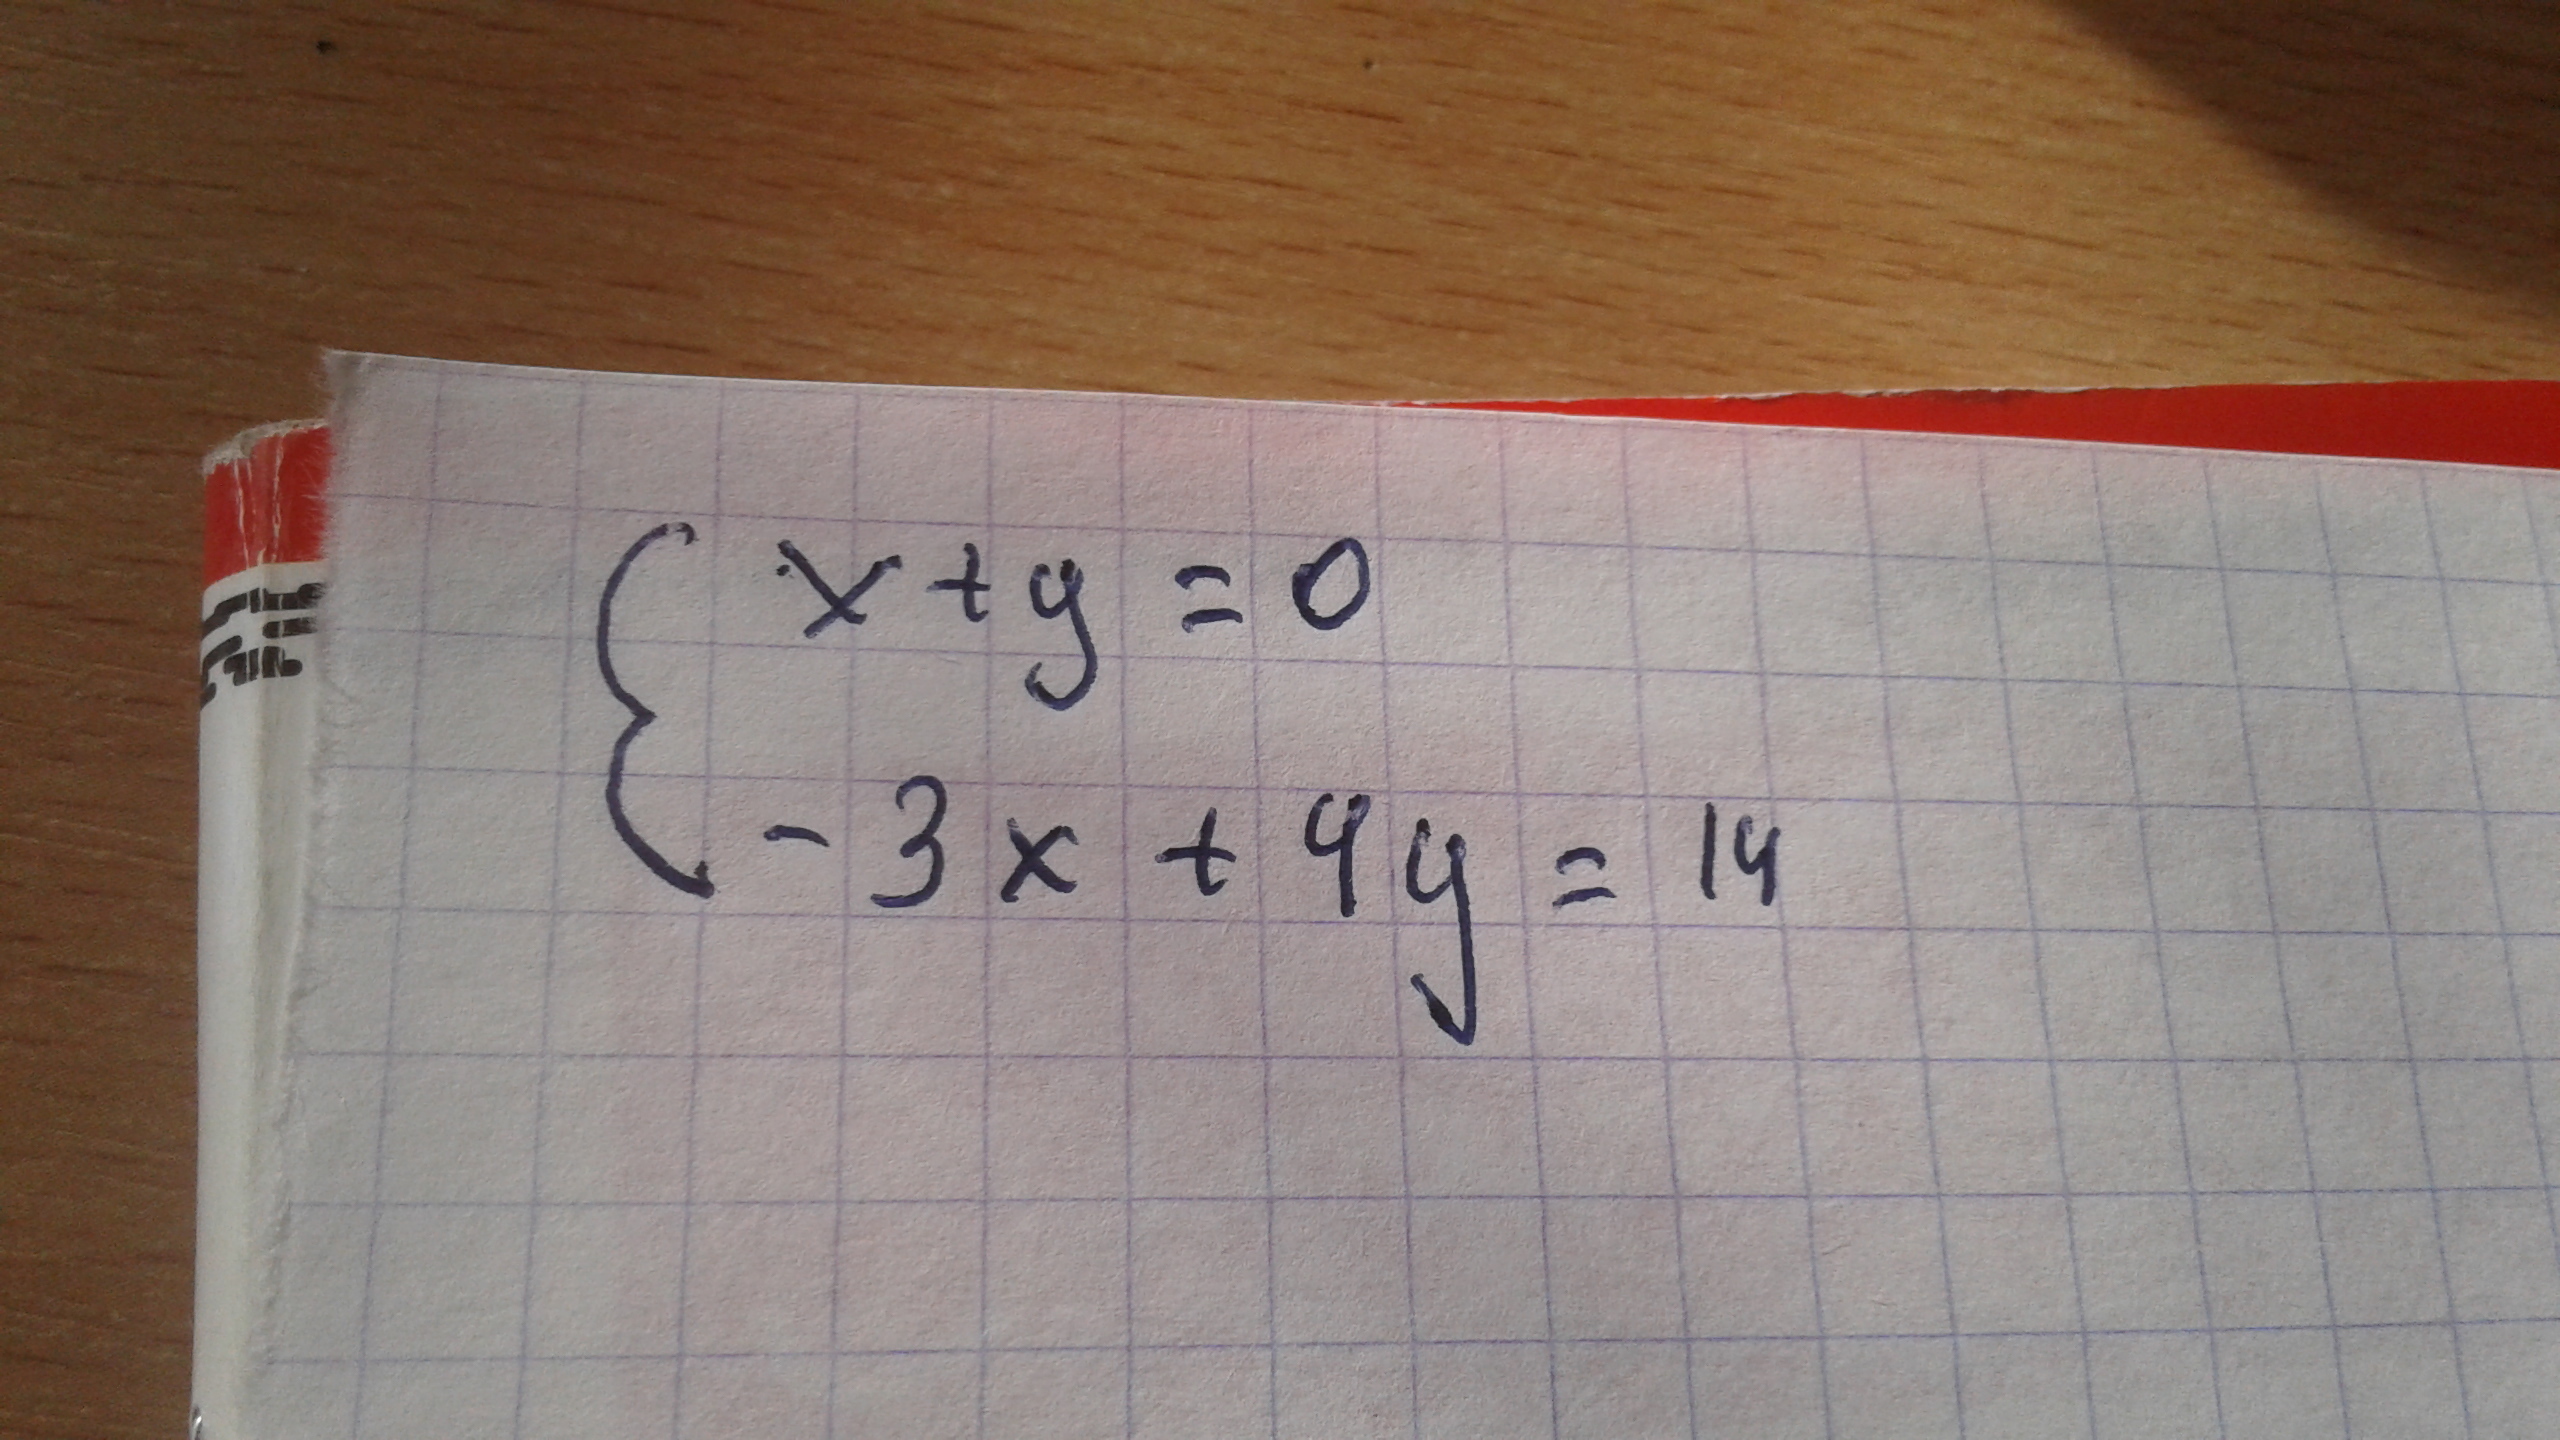 x + y = 0
-3x + 4y = 14